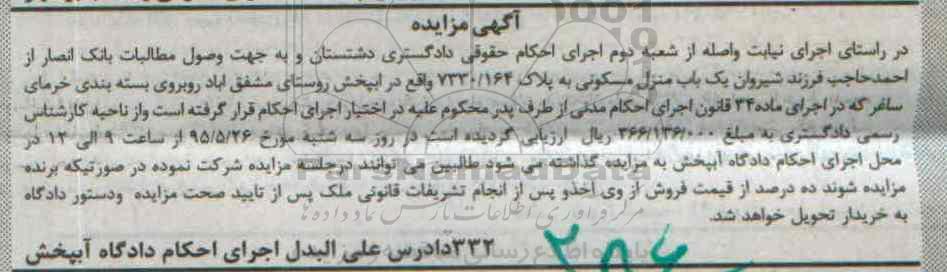 آگهی مزایده
در راستای اجرای نیابت واصله از شعبه دوم اجرای احکام حقوقی دادگستری دشتستان و به جهت وصول مطالبات بانک انصار از
احمدحاجب فرزند شیروان یک باب منزل مسکونی به پلاک ۷۳۳۰/۱۶۴ واقع در ابپخش روستای مشفق اباد روبروی بسته بندی خرمای
سافر که در اجرای ماده۳۴ قانون اجرای احکام مدنی از طرف پدر محکوم علیه در اختیار اجرای احکام قرار گرفته است واز ناحیه کارشناس
رسمی دادگستری به مبلغ ۳۶۶/۱۳۶/۰۰۰ ریال ارزیابی گردیده است در روز سه شنبه مورخ ۹۵/۵/۲۶ از ساعت ۹ الی ۱۲ در
محل اجرای احکام دادگاه آبپخش به مزایده گذاشته می شود طالبین می توانند درجلسه مزایده شرکت نموده در صورتیکه برنده
مزایده شوند ده درصد از قیمت فروش از وی اخذو پس از انجام تشریفات قانونی ملک پس از تایید صحت مزایده ودستور دادگاه
به خریدار تحویل خواهد شد.
ParsNamadData
مرکز فرآوری اطلاعات پارس نماد داده ها
۳۳۲دادرس علی البدل اجرای احکام دادگاه آبپخش